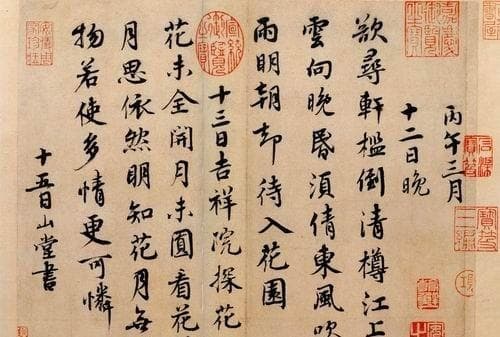 丙午三月
十二日晚
嘉慶御覽之寶
欲尋軒檻倒清樽江上
雲向晚昏須倩東風吹
雨明朝却待入花園
宣統御覽之寶
十三日吉祥院探花
花未全開月未圓看花
月思依然明知花月無
物若使多情更可憐
十五日山堂書